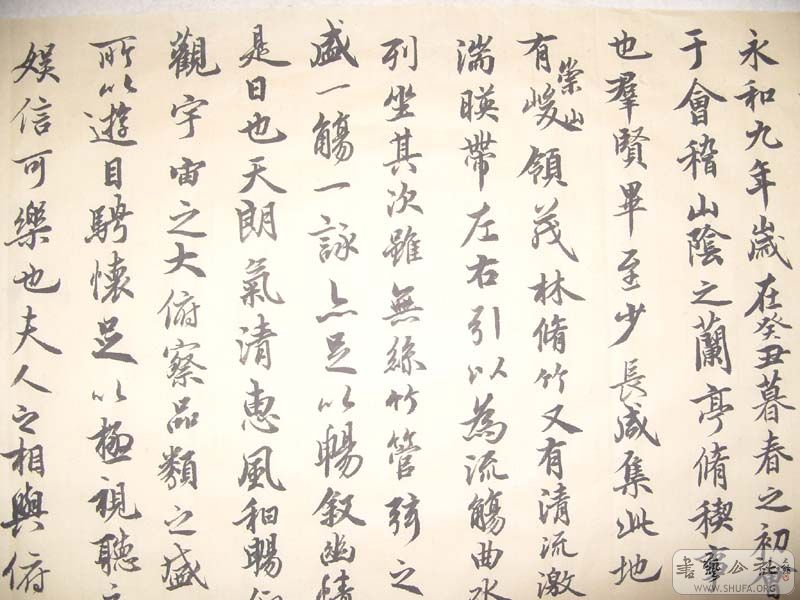 永和九年歲在癸丑暮春之初會
于會稽山陰之蘭亭脩稧事
也羣賢畢至少長咸集此地
有崇山峻領茂林脩竹又有清流激
湍暎帶左右引以為流觴曲水
列坐其次雖無絲竹管弦之
盛一觴一詠亦足以暢叙幽情
是日也天朗氣清惠風和暢仰
觀宇宙之大俯察品類之盛
所以遊目騁懷足以極視聽之
娛信可樂也夫人之相與俯
書藝公社
WWW.SHUFA.ORG